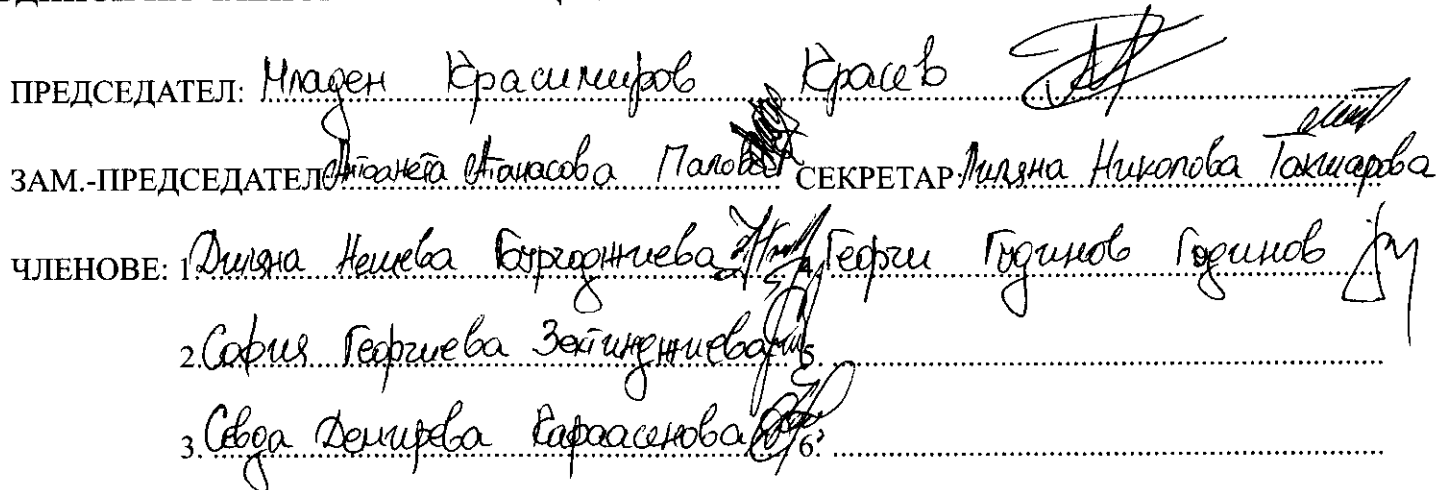 ПРЕДСЕДАТЕЛ: Младен Красимиров Красев
ЗАМ.-ПРЕДСЕДАТЕЛ Антоанета Атанасова СЕКРЕТАР Лиляна Николова Такшарова
ЧЛЕНОВЕ: 1 Диляна Нешева Бургоджиева 4. Георги Годинов Годинов
2. София Георгиева Зейтинджиева 5.
3. Севда Демирева Караасенова 6.